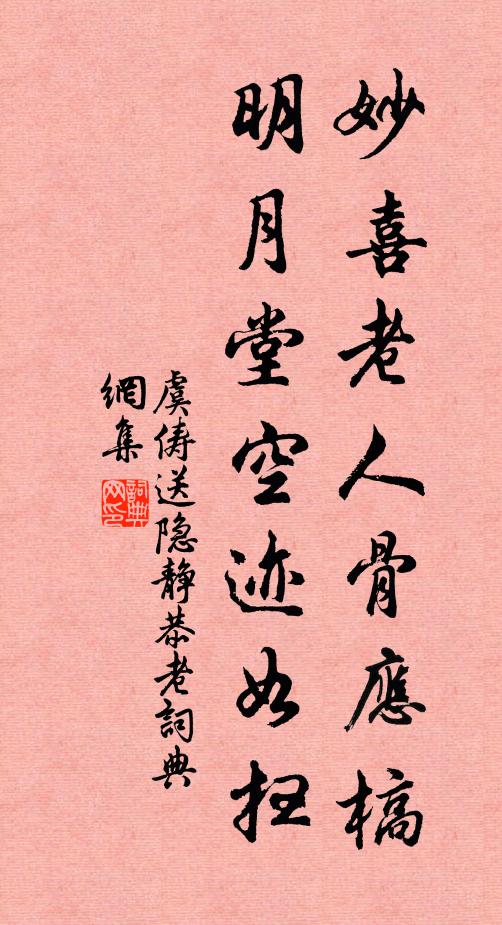 妙喜老人骨應槁
明月堂空迹如扫
虞俦送隐静恭老詞典
網集
詞典網印